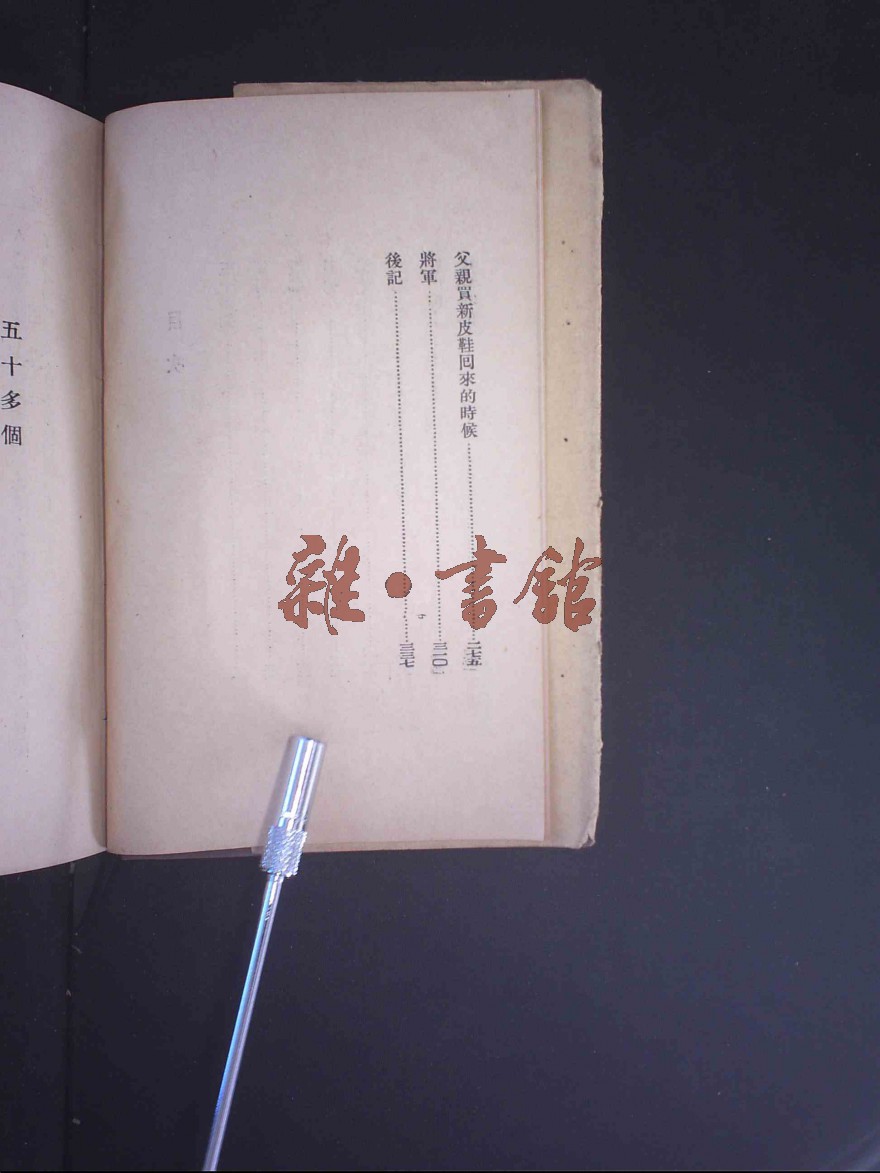 父親買新皮鞋回來的時候……二七五
將軍……三一〇
後記……三三七
五十多個
雜·書舘